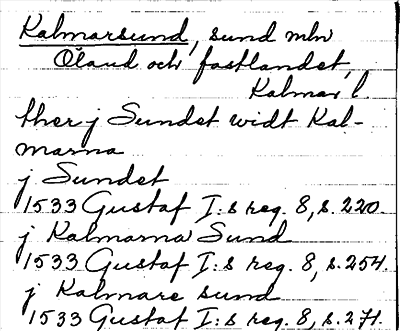 Kalmarsund, sund mln
Öland och fastlandet,
Kalmar l
ther j Sundet widt Kal-
marna
j Sundet
1533 Gustaf I:s reg. 8, s. 220.
j Kalmarna Sund
1533 Gustaf I:s reg. 8, s. 254.
j Kalmare sund
1533 Gustaf I:s reg. 8, s. 271.